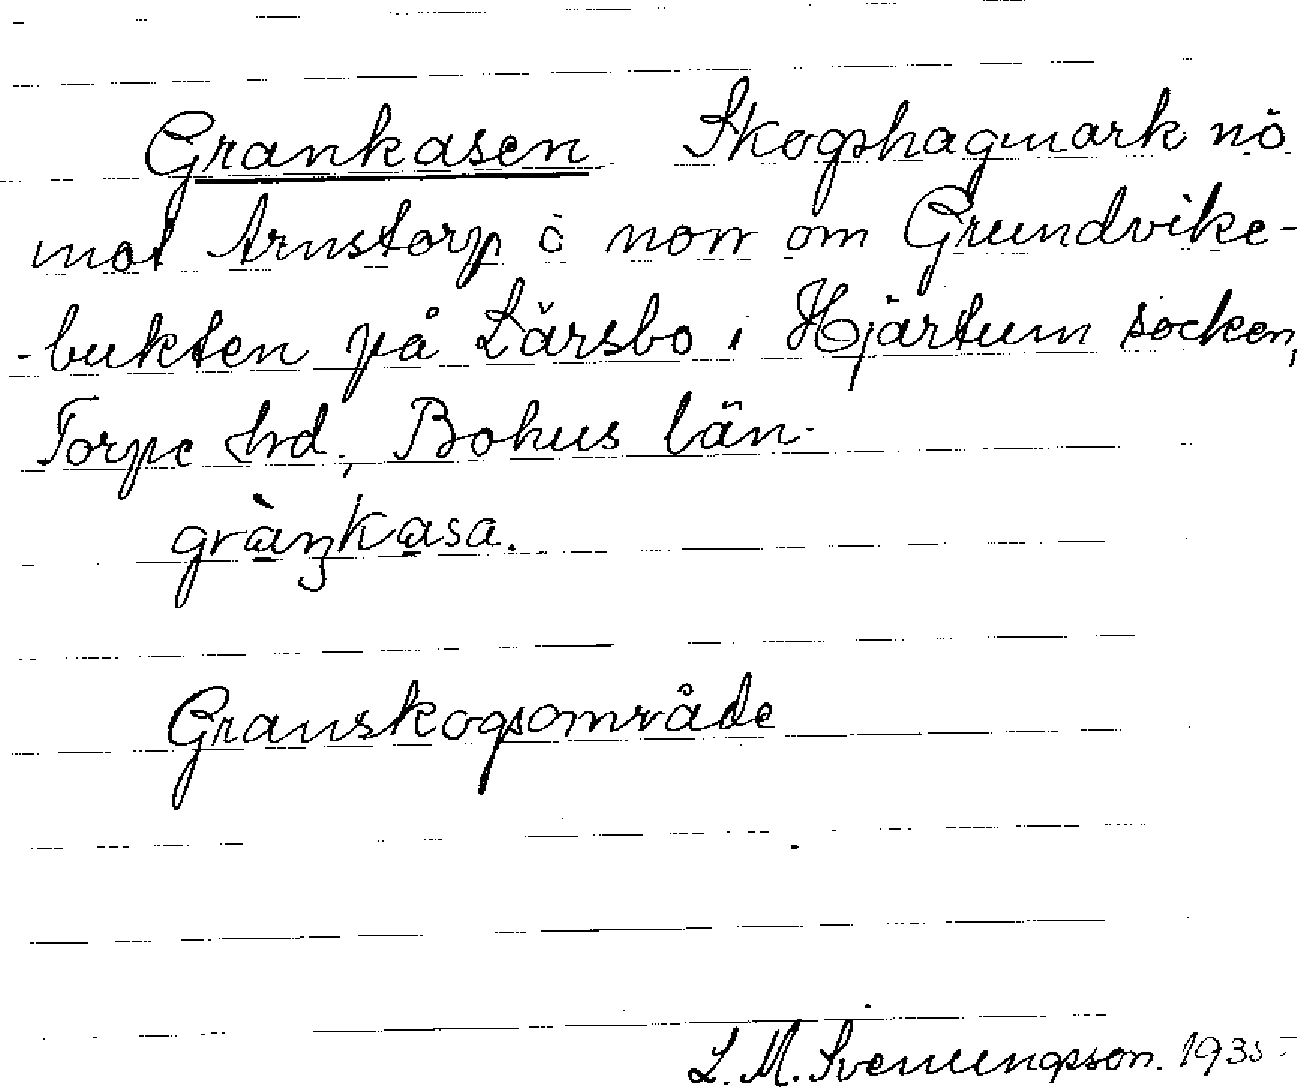 Grankasen Skogshagmark nö
mot Arnstorp o norr om Grundvike-
-bukten på Lärsbo i Hjärtum socken,
Torpe hrd, Bohus län.
gràŋkasa.
Granskogsområde
L. M. Svenungsson. 1935